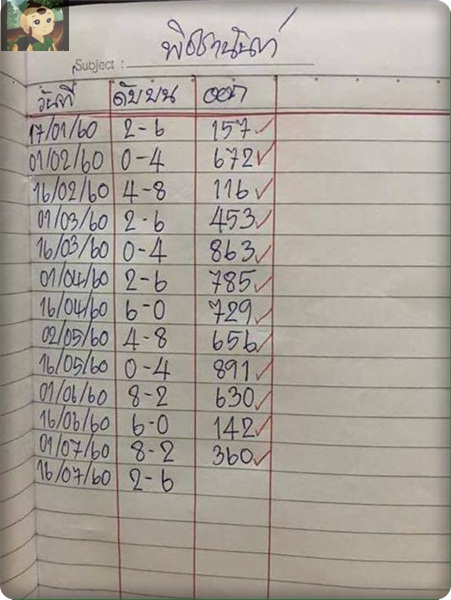 พิชานันท์
Subject :
วันที่ ดับบน ออก
17/01/60 2-6 157✓
01/02/60 0-4 672✓
16/02/60 4-8 116✓
01/03/60 2-6 453✓
16/03/60 0-4 863✓
01/04/60 2-6 785✓
16/04/60 6-0 729✓
02/05/60 4-8 656✓
16/05/60 0-4 891✓
01/06/60 8-2 630✓
16/06/60 6-0 142✓
01/07/60 8-2 360✓
16/07/60 2-6